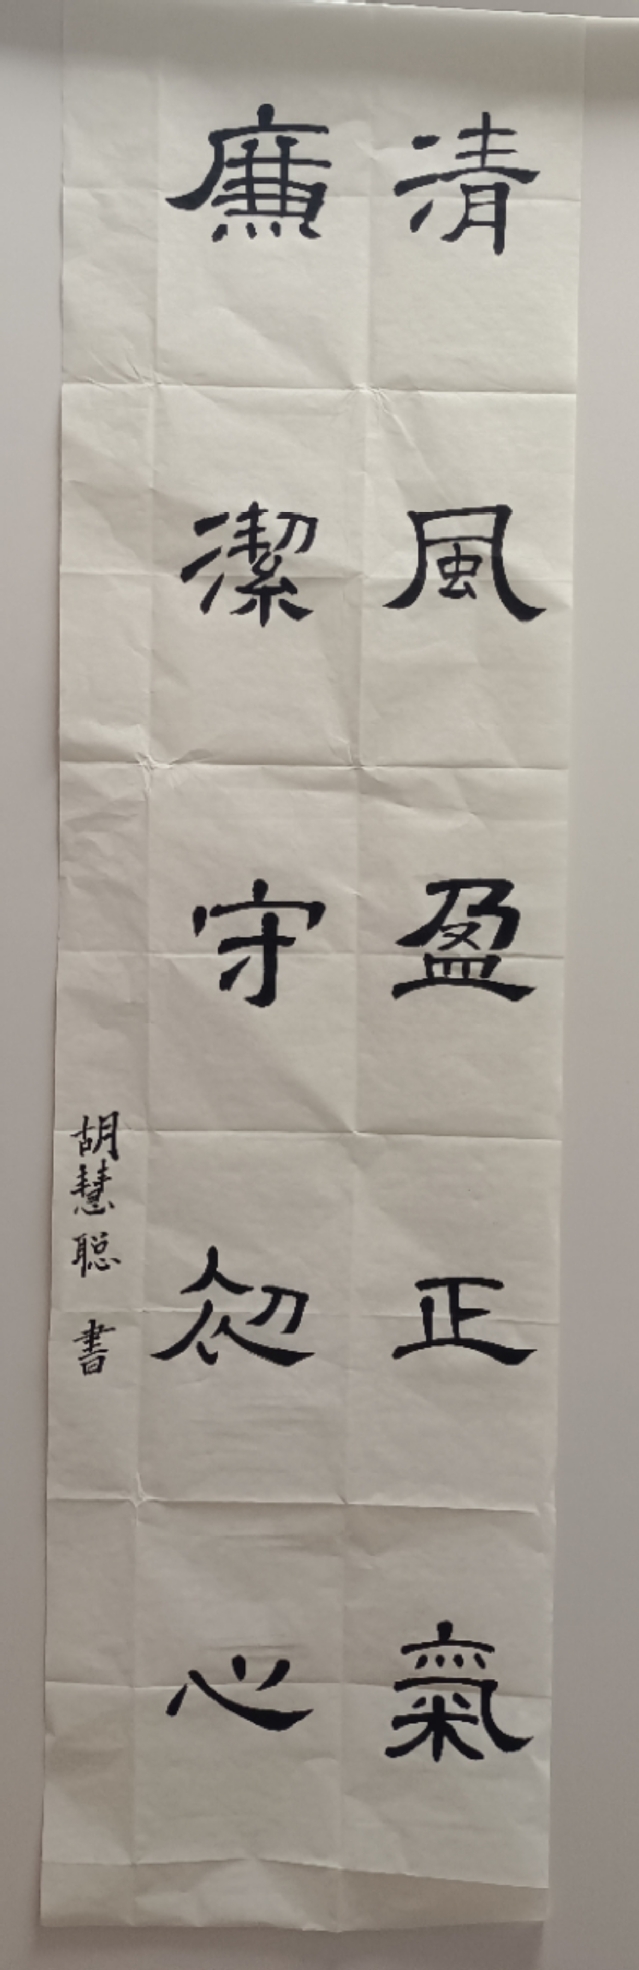 清風盈正氣
廉潔守初心
胡慧聡 書